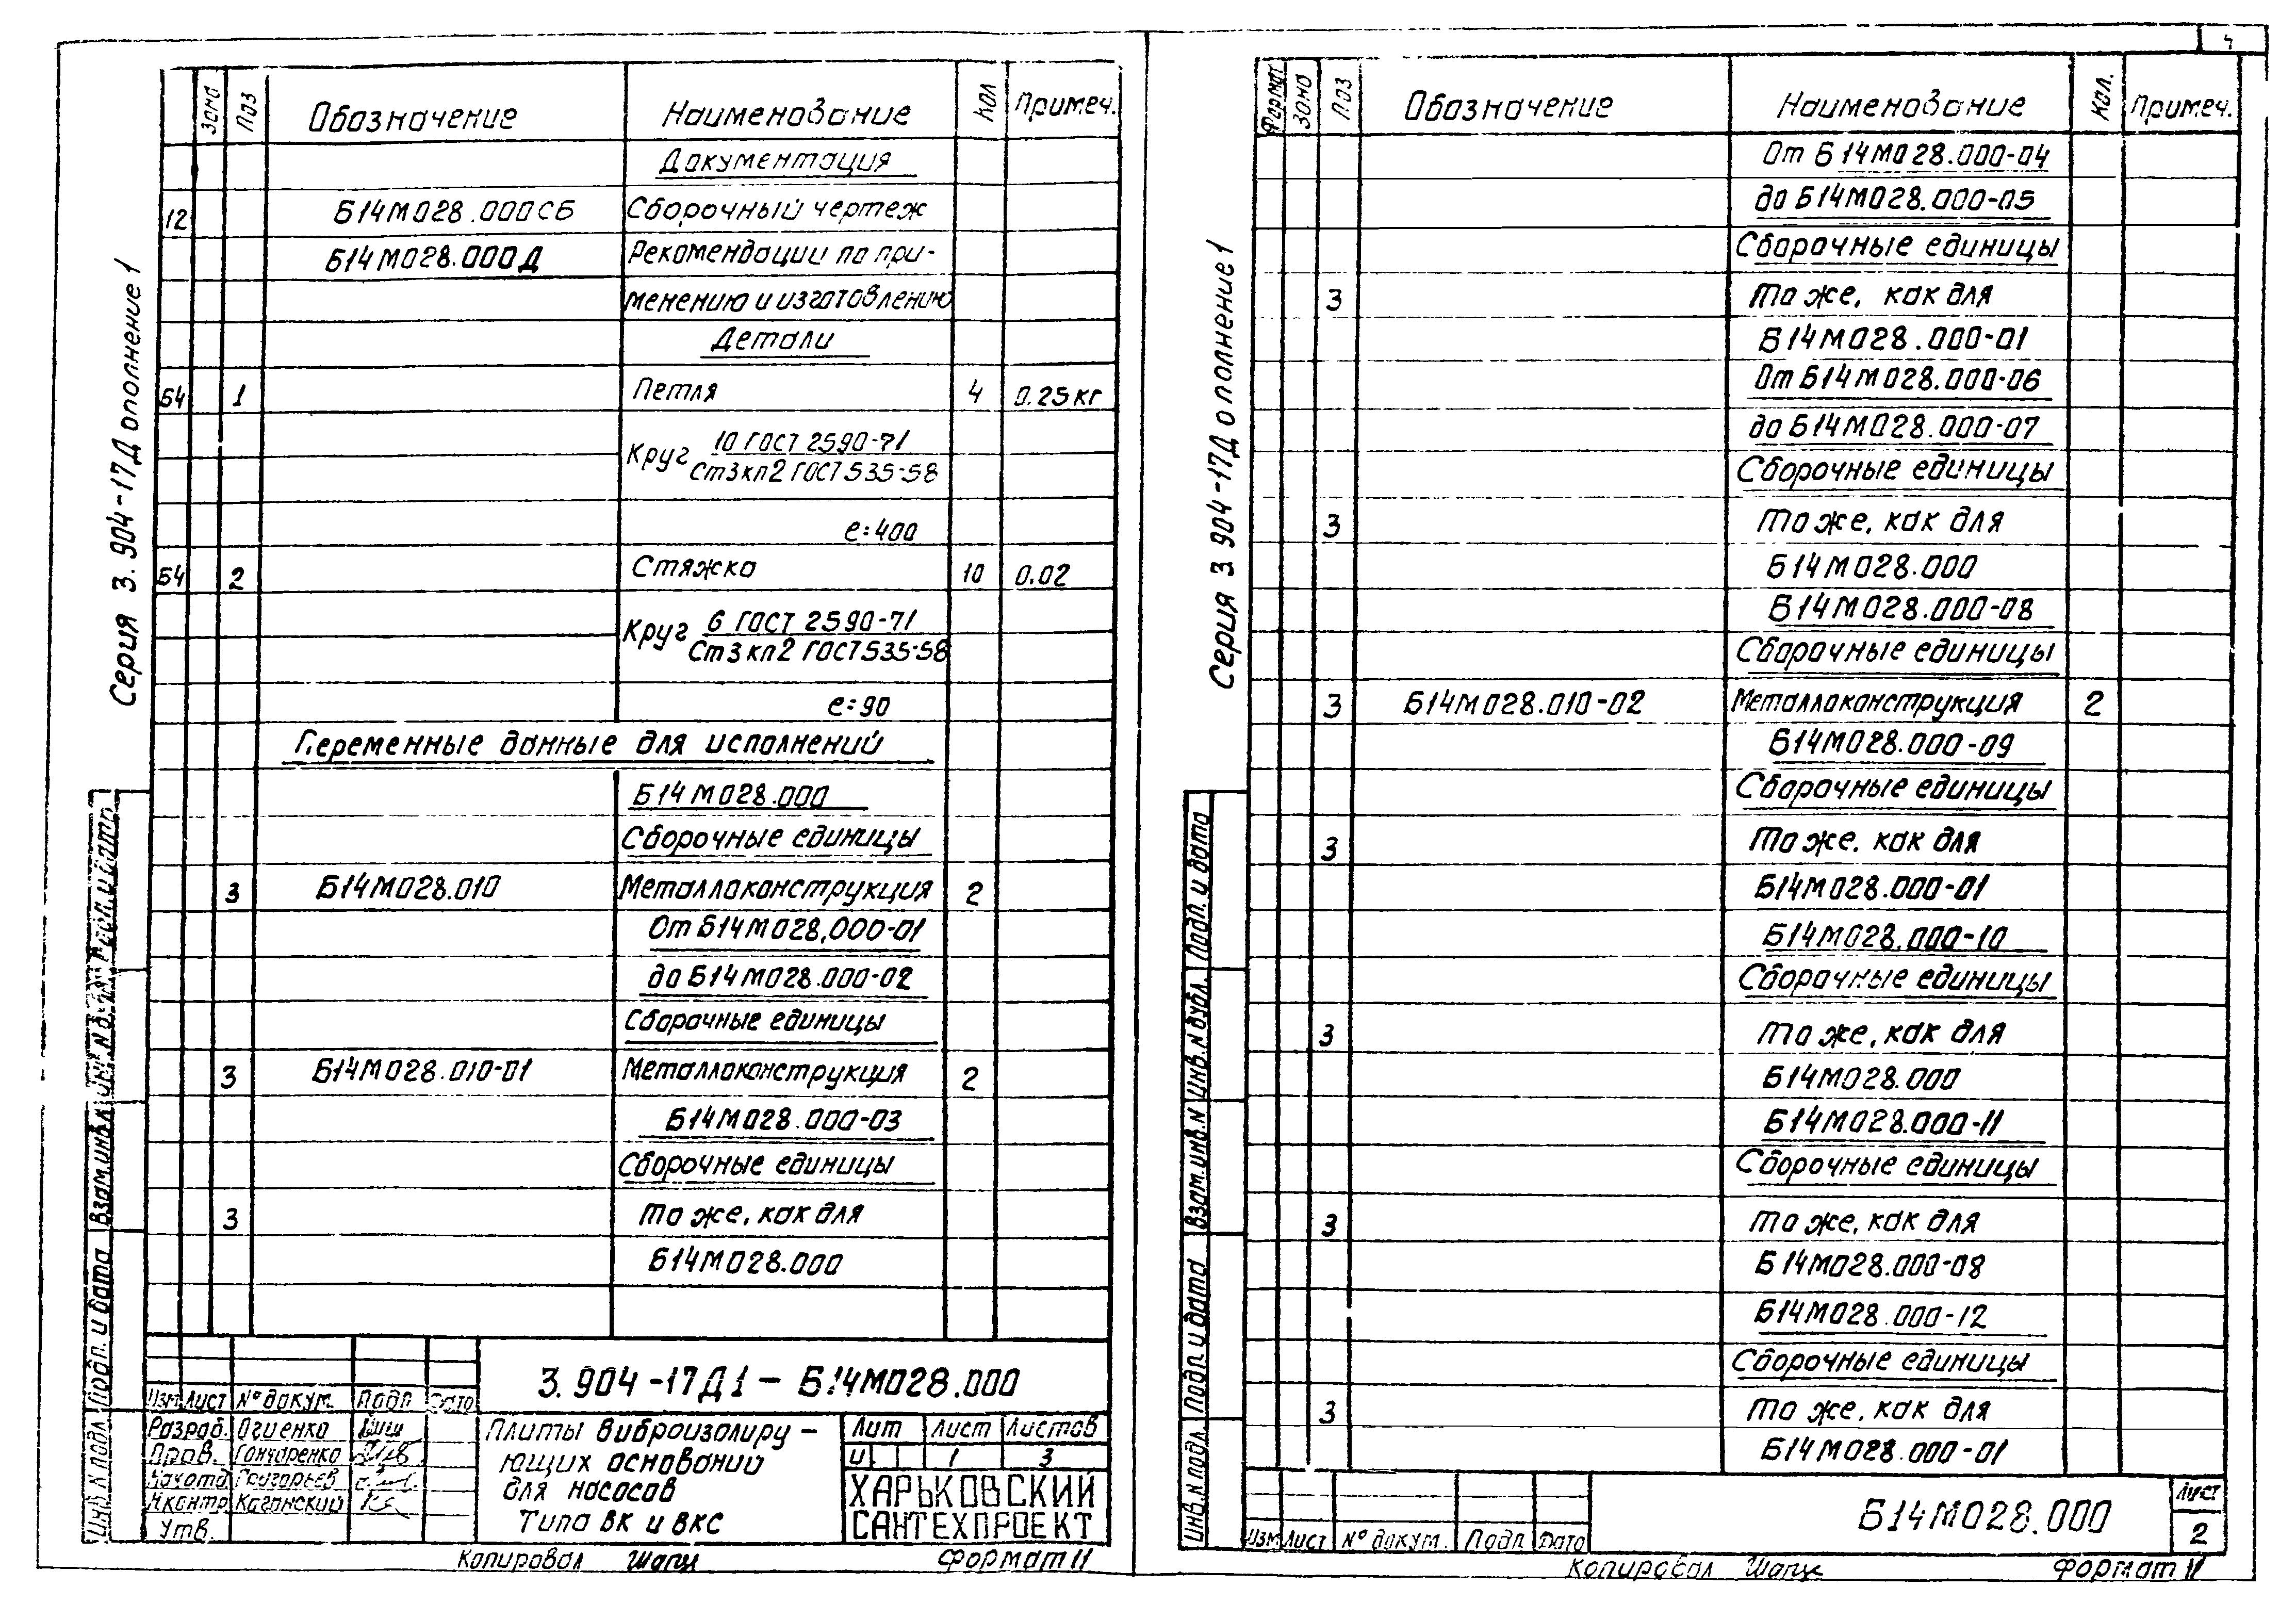 4
Серия 3.904-17 Дополнение 1
Зона Поз Обозначение Наименование Кол Примеч.
Документация
12 Б14М028.000СБ Сборочный чертеж
Б14М028.000Д Рекомендации по при-
менению и изготовлению
Детали
Б4 1 Петля 4 0.25кг
Круг 10 ГОСТ 2590-71
Ст3кп2 ГОСТ535-58
е=400
Б4 2 Стяжка 10 0.02
Круг 6 ГОСТ 2590-71
Ст3кп2 ГОСТ535-58
е=90
Переменные данные для исполнений
Б14М028.000
Сборочные единицы
3 Б14М028.010 Металлоконструкция 2
От Б14М028,000-01
до Б14М028.000-02
Сборочные единицы
3 Б14М028.010-01 Металлоконструкция 2
Б14М028.000-03
Сборочные единицы
3 То же, как для
Б14М028.000
Инв.N подл. Подп. и дата Взам.инв.N Инв.N дубл. Подп. и дата
3.904-17Д1-Б14М028.000
Изм Лист N° докум. Подп Дата
Разраб. Огиенко
Пров. Гончаренко
Нач.отд Григорьев
Н.контр Каганский
Утв.
Плиты виброизолиру-
ющих оснований
для насосов
Типа ВК и ВКС
Лит Лист Листов
И 1 3
ХАРЬКОВСКИЙ
САНТЕХПРОЕКТ
Копировал Шапц Формат 11
Серия 3.904-17 Дополнение 1
Формат Зона Поз Обозначение Наименование Кол. Примеч.
От Б14М028.000-04
до Б14М028.000-05
Сборочные единицы
3 То же, как для
Б14М028.000-01
От Б14М028.000-06
до Б14М028.000-07
Сборочные единицы
3 То же, как для
Б14М028.000
Б14М028.000-08
Сборочные единицы
3 Б14М028.010-02 Металлоконструкция 2
Б14М028.000-09
Сборочные единицы
3 То же, как для
Б14М028.000-01
Б14М028.000-10
Сборочные единицы
3 То же, как для
Б14М028.000
Б14М028.000-11
Сборочные единицы
3 То же, как для
Б14М028.000-08
Б14М028.000-12
Сборочные единицы
3 То же, как для
Б14М028.000-01
Инв.N подл. Подп и дата Взам.инв.N Инв.N дубл. Подп. и дата
Изм Лист N° докум. Подп Дата
Б14М028.000
Лист
2
Копировал Шапц Формат 11